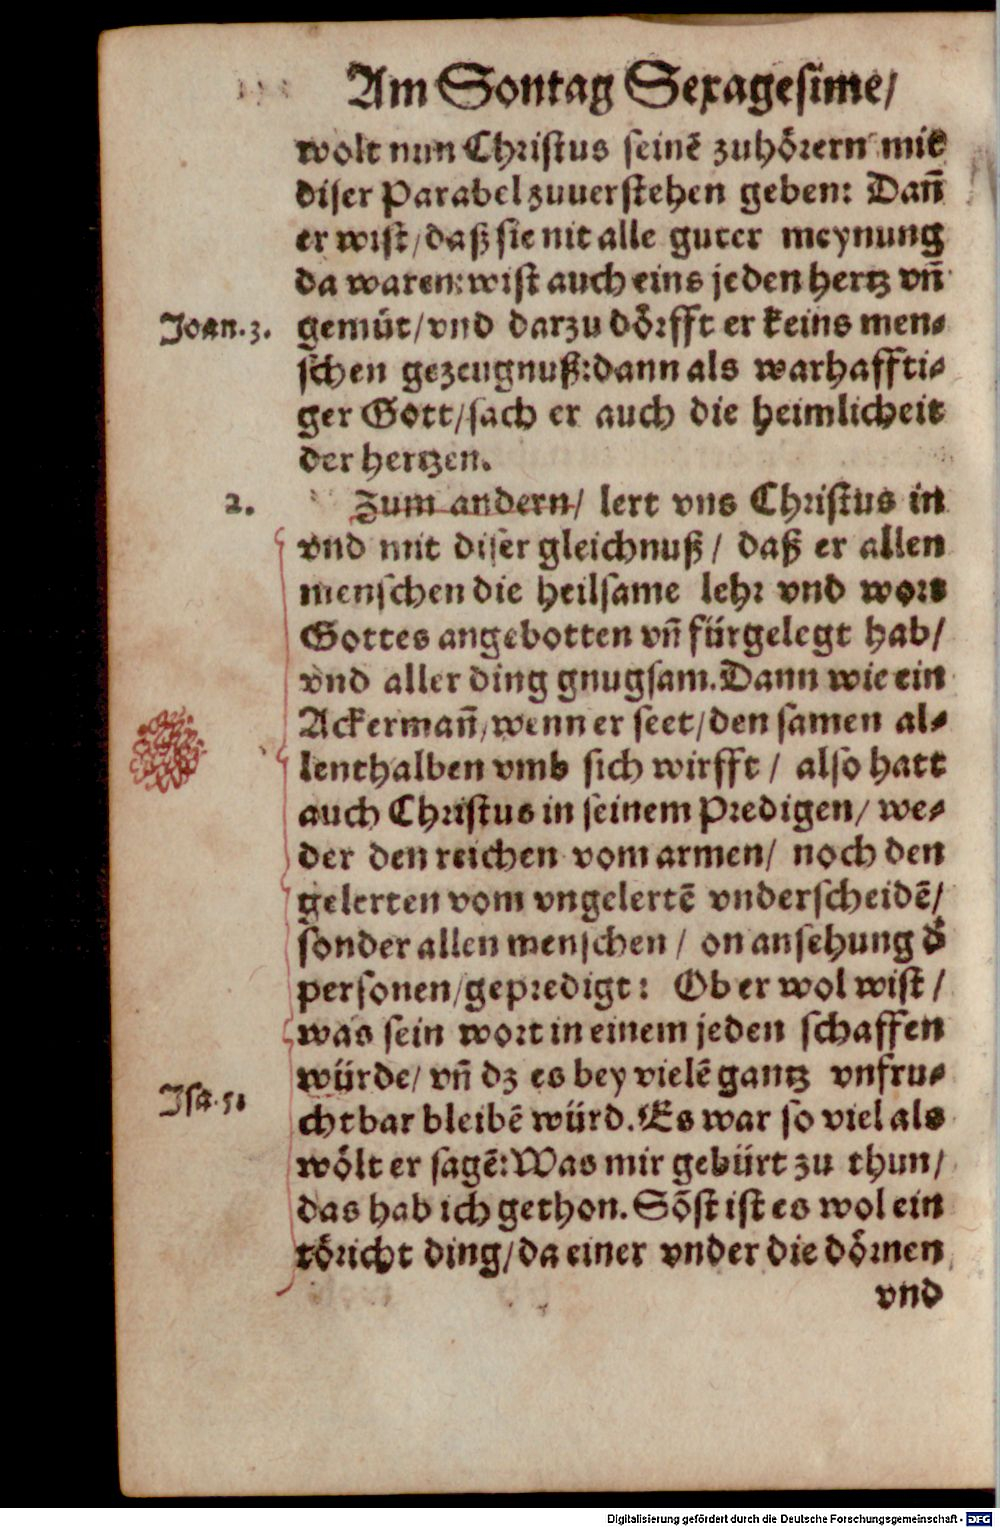 Am Sontag Sexagesime/
wolt nun Christus seinē zuhörern mit
diser Parabel zuuerstehen geben: Dañ
er wist/daß sie nit alle guter meynung
da waren: wist auch eins jeden hertz vñ
Joan.3. gemüt/vnd darzu dörfft er keins men-
schen gezeugnuß: dann als warhaffti-
ger Gott/sach er auch die heimlicheit
der hertzen.
2. Zum andern/ lert vns Christus in
vnd mit diser gleichnuß/ daß er allen
menschen die heilsame lehr vnd wort
Gottes angebotten vñ fürgelegt hab/
vnd aller ding gnugsam. Dann wie ein
Ackermañ/wenn er seet/den samen al-
lenthalben vmb sich wirfft/ also hatt
auch Christus in seinem Predigen/ we-
der den reichen vom armen/ noch den
gelerten vom vngelertē vnderscheidē/
sonder allen menschen/ on ansehung d̕
personen/gepredigt: Ob er wol wist/
was sein wort in einem jeden schaffen
würde/ vñ dz es bey vielē gantz vnfru-
Isa.5. chtbar bleibē würd. Es war so viel als
wölt er sagē: Was mir gebürt zu thun/
das hab ich gethon. Sõst ist es wol ein
töricht ding/da einer vnder die dörnen
vnd
Digitalisierung gefördert durch die Deutsche Forschungsgemeinschaft - DFG